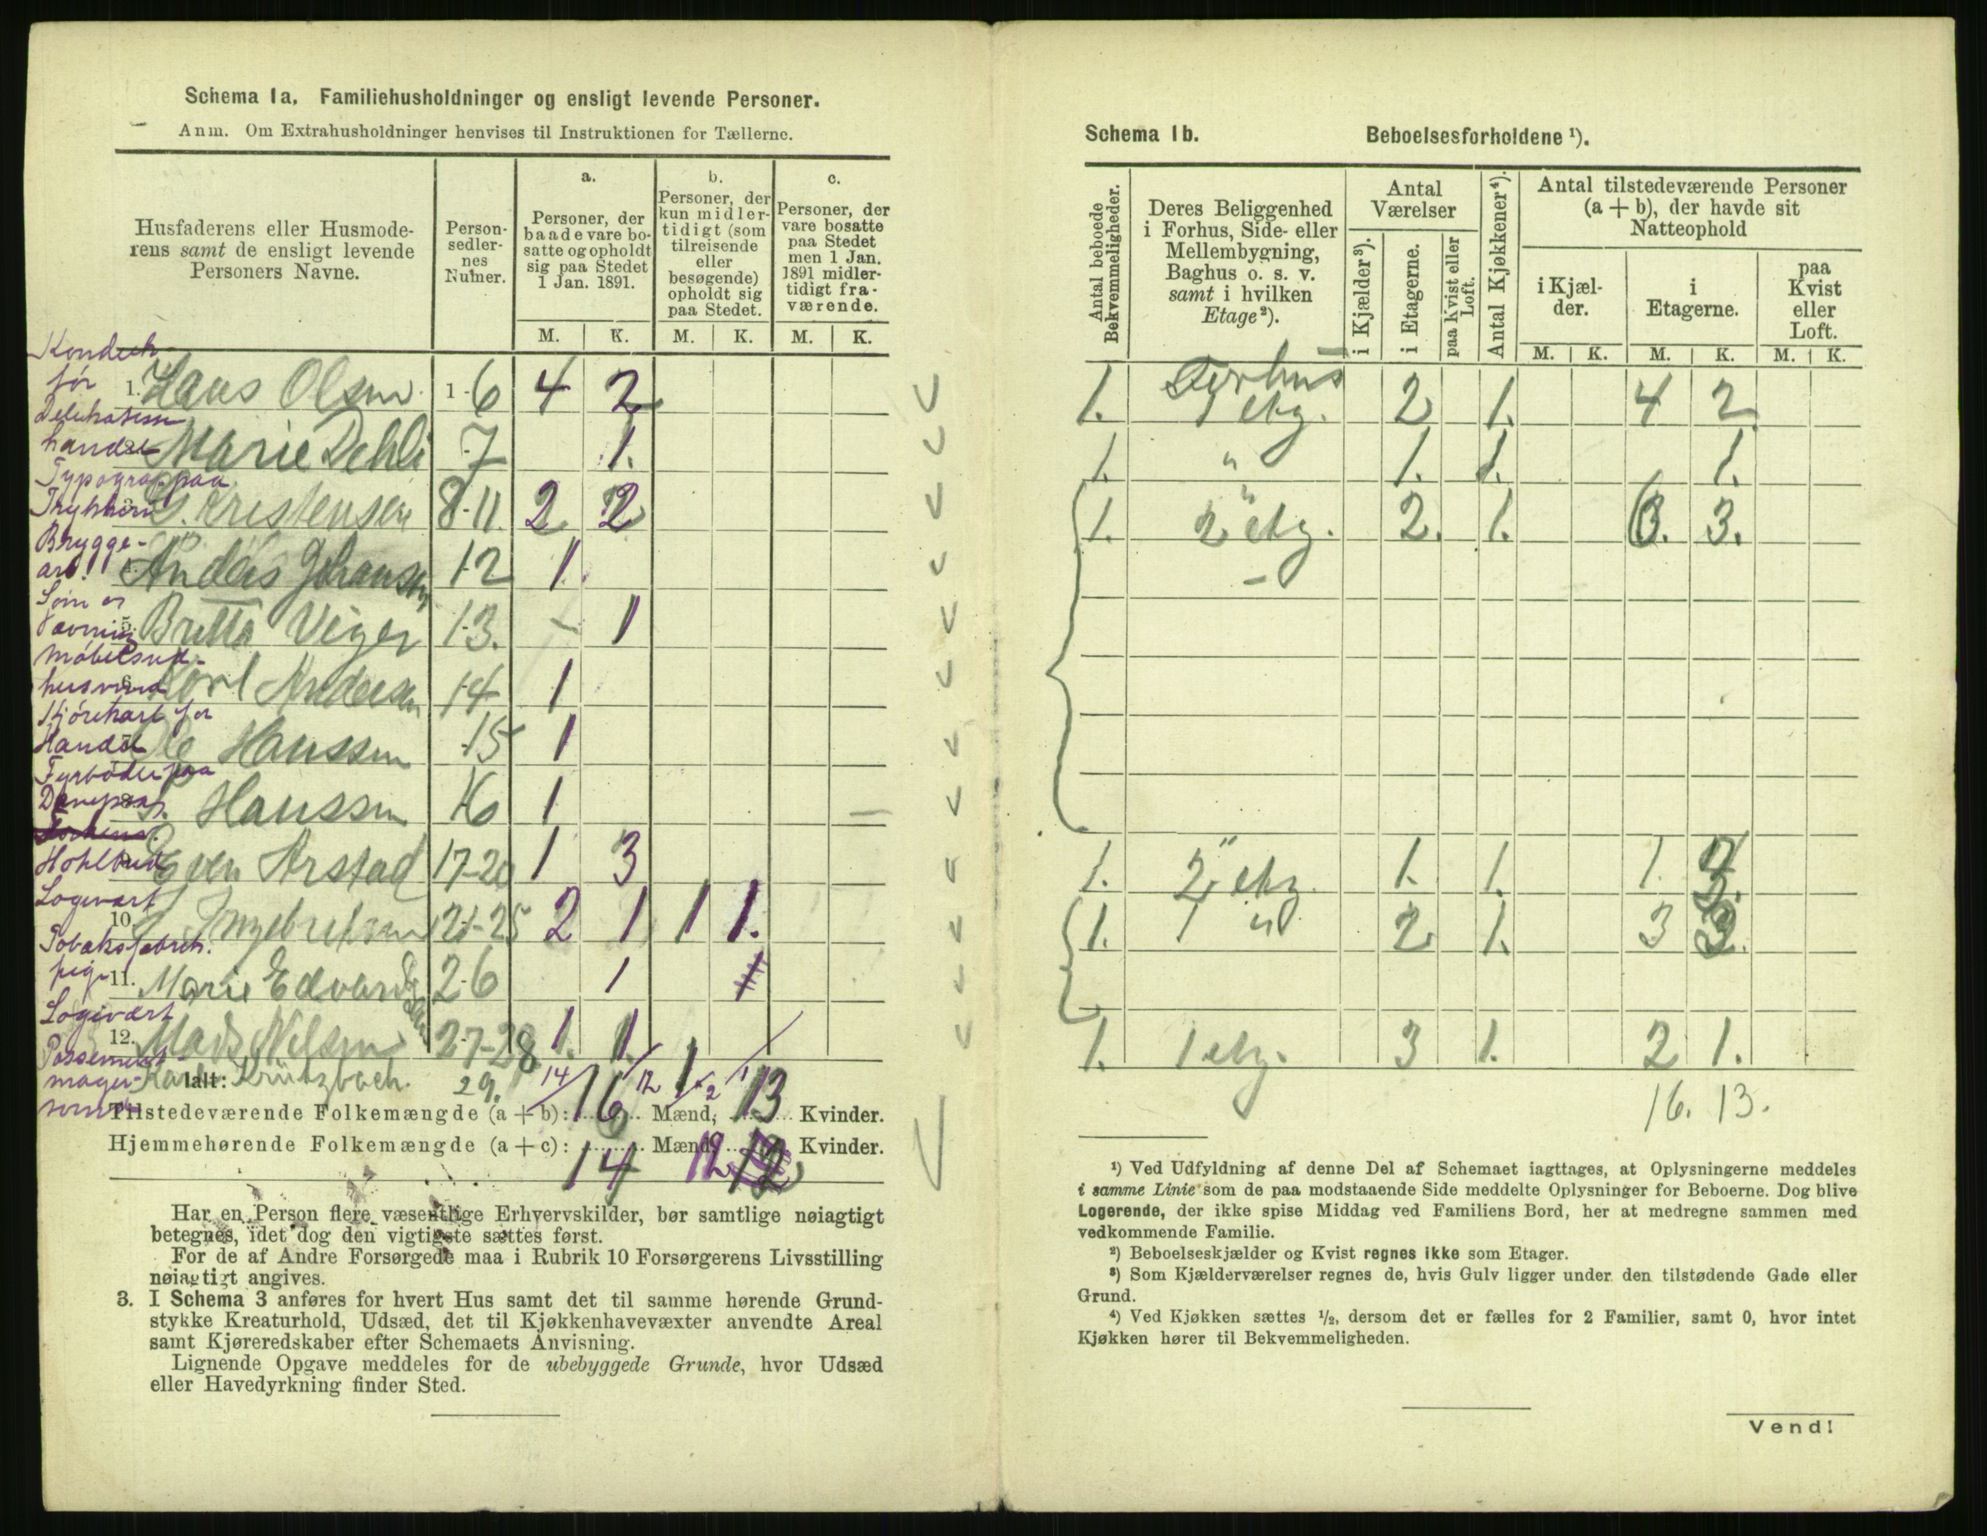 Schema 1a. Familiehusholdninger og ensligt levende Personer.
Anm. Om Extrahusholdninger henvises til Instruktionen for Tællerne.
Husfaderens eller Husmode-
rens samt de ensligt levende
Personers Navne.
Person-
sedler-
nes
Numer.
a.
Personer, der
baade vare bo-
satte og opholdt
sig paa Stedet
1 Jan. 1891.
b.
Personer, der
kun midler-
tidigt (som
tilreisende
eller
besøgende)
opholdt sig
paa Stedet.
c.
Personer, der
vare bosatte
paa Stedet
men 1 Jan.
1891 midler-
tidigt fra-
værende.
M. K. M. K. M. K.
1. Hans Olsen 1-6 4 2
handel Marie Dehli 7 1.
Typograf paa
3. Kristensen 8-11. 2 2
Brygge-
arb. Anders Johansen 12 1.
Søm og
5. Britta Viger 13. - 1
Karl Andersen 14 1
Ole Hanssen 15 1
Fyrbøder paa
Hanssen 16 1
Even Arstad 17-20 1 3
Logivært
10. Ingebretsen 21-25 2 1 1 1.
Tobaksfabrik
pige 11. Marie Edvardsen 26 1 1
Logivært
12. Mads Nilsen 27-28 1. 1.
Possement-
mager-
Ialt: Karl Krützbach. 29. 1
14/ 12/ 2 1/
Tilstedeværende Folkemængde (a + b): 16 Mænd, 13 Kvinder.
Hjemmehørende Folkemængde (a + c): 14 Mænd, 12 12 Kvinder.
Har en Person flere væsentlige Erhvervskilder, bør samtlige nøiagtigt
betegnes, idet dog den vigtigste sættes først.
For de af Andre Forsørgede maa i Rubrik 10 Forsørgerens Livsstilling
nøiagtigt angives.
3. I Schema 3 anføres for hvert Hus samt det til samme hørende Grund-
stykke Kreaturhold, Udsæd, det til Kjøkkenhavevæxter anvendte Areal
samt Kjøreredskaber efter Schemaets Anvisning.
Lignende Opgave meddeles for de ubebyggede Grunde, hvor Udsæd
eller Havedyrkning finder Sted.
Schema 1b. Beboelsesforholdene ¹).
Antal beboede
Bekvemmeligheder.
Deres Beliggenhed
i Forhus, Side- eller
Mellembygning,
Baghus o. s. v.
samt i hvilken
Etage²).
Antal
Værelser
i Kjælder³).
i Etagerne.
paa Kvist eller
Loft.
Antal Kjøkkener⁴).
Antal tilstedeværende Personer
(a + b), der havde sit
Natteophold
i Kjæl-
der.
i
Etagerne.
paa
Kvist
eller
Loft.
M. K. M. K. M. K.
1. Forhus 1 etg. 2 1. 4 2
1. " 1. 1. 1.
1. 2" etg. 2. 1. 3. 3.
1. 2" etg. 1. 1. 1. 3.
1. 1 " 2 1. 3 3.
1. 1 etg. 3 1. 2 1.
16. 13.
¹) Ved Udfyldning af denne Del af Schemaet iagttages, at Oplysningerne meddeles
i samme Linie som de paa modstaaende Side meddelte Oplysninger for Beboerne. Dog blive
Logerende, der ikke spise Middag ved Familiens Bord, her at medregne sammen med
vedkommende Familie.
²) Beboelseskjælder og Kvist regnes ikke som Etager.
³) Som Kjælderværelser regnes de, hvis Gulv ligger under den tilstødende Gade eller
Grund.
⁴) Ved Kjøkken sættes ½, dersom det er fælles for 2 Familier, samt 0, hvor intet
Kjøkken hører til Bekvemmeligheden.
Vend!